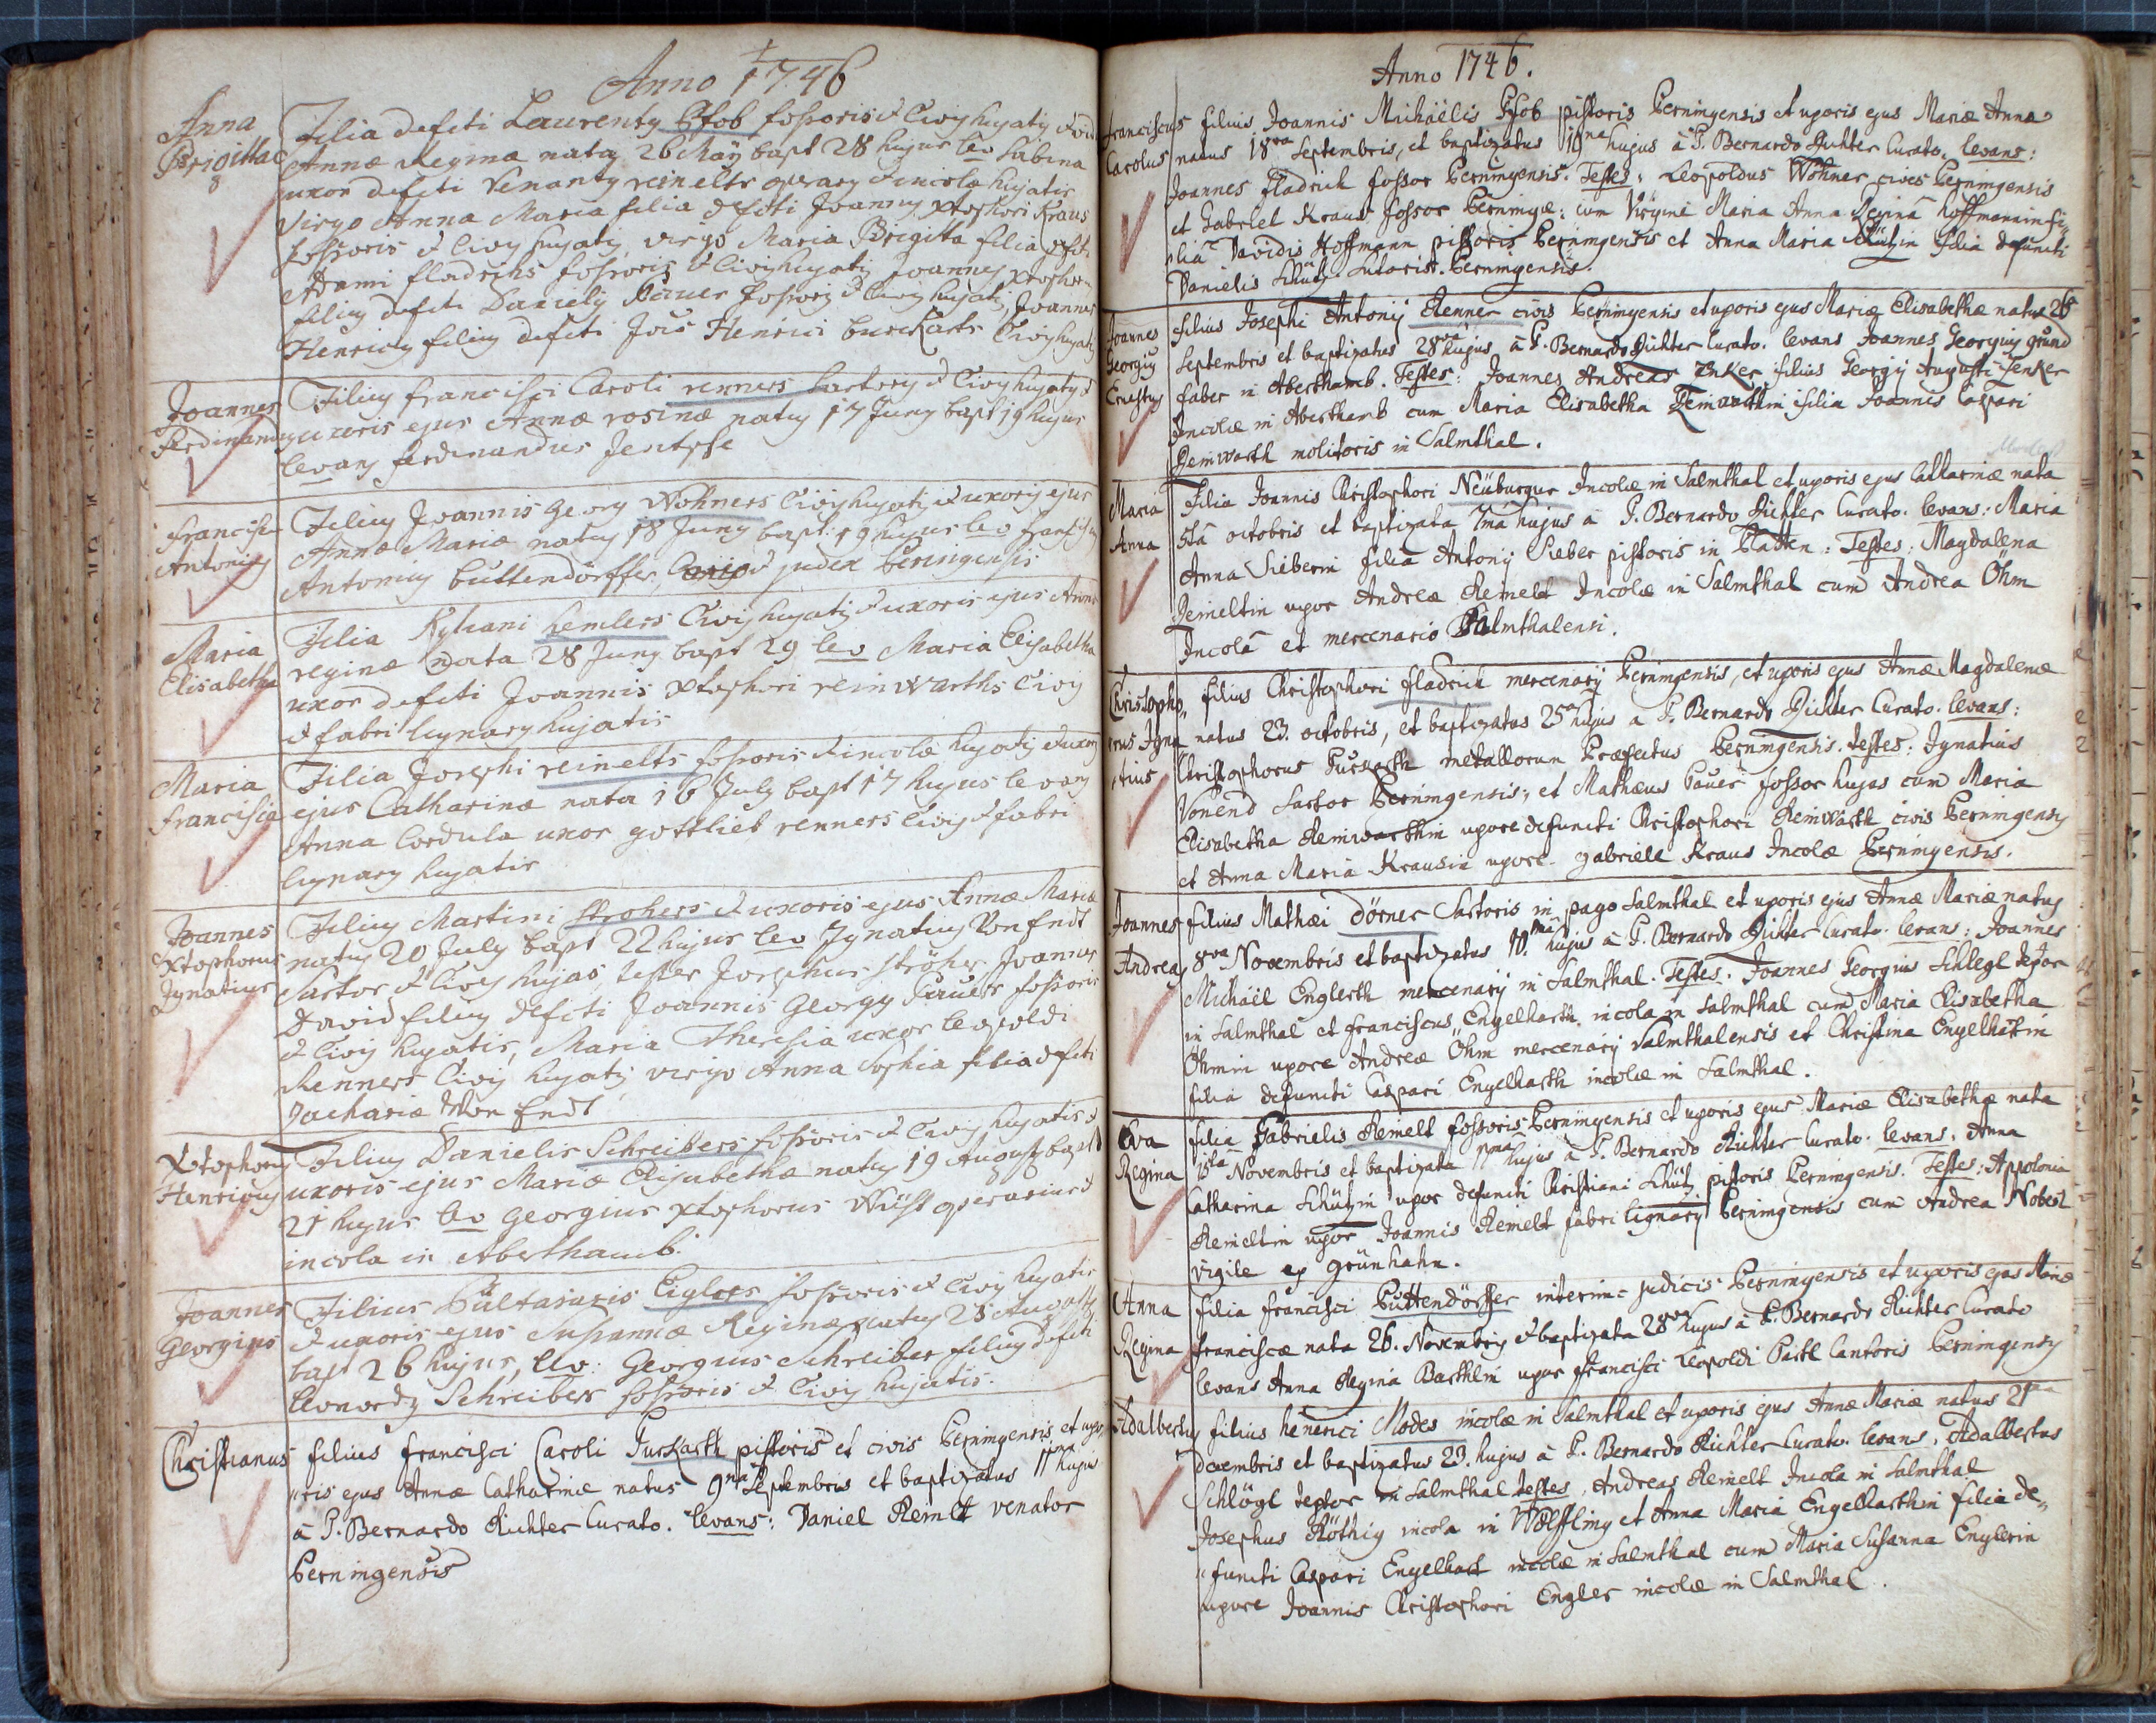 Anno 1746
Anna
Brigitta
Filia defcti Laurenty Gfob fossoris & Civis hujatis &
Annæ Reginæ nata 26 Maÿ bapt 28 hujus lev Sabina
uxor defcti Venanty reinelts operary & incolæ hujatis
Virgo Anna Maria filia defcti Joannis Xtophori Kraus
fossoris & Civis hujatis virgo Maria Brigitta filia defcti
Adami fladrichs fossoris & Civis hujatis Joannes Xtophor
filius defcti Danielis Bauer fossoris & Civis hujatis, Joannes
Henricus filius defcti Jois Henrici burckarts Civis hujatis
Joannes
Ferdinandus
Filius francisci Caroli renners Sartory & Civis hujatis &
uxoris ejus Annæ rosinæ natus 17 Juny bapt 19 hujus
levans ferdinandus Jentsch
Francisc
Antonius
Filius Joannis Georg Wohners Civis hujatis & uxoris ejus
Annæ Mariæ natus 18 Juny bapt. 19 hujus lev
Antonius büttendörffer, judex Berningensis
Maria
Elisabetha
Filia Kyliani hemlers Civis hujatis & uxoris ejus Annæ
reginæ nata 28 Juny bapt 29 lev Maria Elisabetha
uxor defcti Joannis Xtophori reinwarths Civis
& fabri lignary hujatis
Maria
francisca
Filia Josephi reinelts fossoris & incolæ hujatis & uxoris
ejus Catharinæ nata 16 July bapt 17 hujus levans
Anna Cordula uxor gottlieb renners Civis & fabri
lignary hujatis
Joannes
Xtophorus
Ignatius
Filius Martini Strohers & uxoris ejus Annæ Mariæ
natus 20 July bapt 22 hujus lev Ignatius Von Endt
Sartor & Civis hujas, testes Josephus Ströher Joannes
David filius defcti Joannis Georgy Bauers fossoris
& Civis hujatis, Maria Theresia uxor leopoldi
Renners Civis hujatis virgo Anna Sophia filia defcti
Zachariæ Von Endt
Xtophorus
Henricus
Filius Danielis Schreibers fossoris & Civis hujatis &
uxoris ejus Mariæ Elisabethæ natus 19 Augusty bapt
21 hujus lev Georgius Xtophorus Wüst operarius &
incola in Aberthamb.
Joannes
Georgius
Filius Baltasaris Eiglers fossoris & Civis hujatis
& uxoris ejus Susannæ Reginæ natus 25 Augusty
bapt 26 hujus, lev: Georgius Schreiber filius defcti
leonardy Schreibers fossoris & Civis hujatis.
Christianus
filius francisci Caroli Purkarth pistoris et civis Berningensis et uxo„
„ris ejus Annæ Catharinæ natus 9na Septembris et baptizatus 11ma hujus
à P. Bernardo Richter Curato. levans: Daniel Reinelt venator
Berningensis
Anno 1746.
Franciscus
Carolus
filius Joannis Michäelis Gfob pistoris Berningensis et uxoris ejus Mariæ Annæ
natus 18va Septembris, et baptizatus 19na hujus à P. Bernardo Richter Curato. levans:
Joannes fladrich fossor Berningensis. Testes: Leopoldus Wohner cives Berningensis
et Gabriel Kraus fossor Berningæ: cum Virgine Maria Anna Regina hoffmannin fi„
„lia Davidis Hoffmann pistoris Berningensis et Anna Maria Schützin filia defuncti
Danielis Schütz Sutoris Berningensis.
Joannes
Georgius
Ernestus
filius Josephi Antonij Renner civis Berningensis et uxoris ejus Mariæ Elisabethæ natus 26
Septembris et baptizatus 28va hujus à P. Bernardo Richter Curato. levans Joannes Georgius grund
faber in Aberthamb. Testes: Joannes Andreas Zenker filius Georgij Augusti Zenker
Incolæ in Aberthamb cum Maria Elisabetha Reinwarthin filia Joannis Caspari
Reinwarth molitoris in Salmthal.
Maria
Anna
Filia Joannis Christophori Neüburger Incolæ in Salmthal et uxoris ejus Catharinæ nata
5ta octobris et baptizata 7ma hujus à P. Bernardo Richter Curato. levans: Maria
Anna Sieberin filia Antonij Sieber pistoris in Platten: Testes: Magdalena
Reineltin uxor Andreæ Reinelt Incolæ in Salmthal cum Andrea Öhm
Incola et mercenario Salmthalensi.
Christopho„
„rus Igna
„tius
filius Christophori fladrich mercenarij Berningensis, et uxoris ejus Annæ Magdalenæ
natus 23. octobris, et baptizatus 25 hujus a P. Bernardo Richter Curato. levans:
Christophorus Purkarth metallorum Præfectus Berningensis. testes: Ignatius
Vonend Sartor Berningensis, et Mathæus Pauer fossor hujas cum Maria
Elisabetha Reinwarthin uxore defuncti Christophori Reinwarth civis Berningensis
et Anna Maria Krausin uxore gabriele Kraus Incolæ Berningensis.
Joannes
Andreas
filius Mathæi Dörner Sartoris in pago Salmthal et uxoris ejus Annæ Mariæ natus
8va Novembris et baptizatus 10ma hujus à P. Bernardo Richter Curato. levans: Joannes
Michäel Englerth mercenarij in Salmthal. Testes. Joannes Georgius Schlegl textor
in Salmthal et franciscus Engelharth incola in Salmthal cum Maria Elisabetha
Öhmin uxore Andreæ Öhm mercenarij Salmthalensis et Christina Engelhartin
filia defuncti Caspari Engelharth incolæ in Salmthal.
Eva
Regina
filia Gabrielis Reinelt fossoris Berningensis et uxoris ejus Mariæ Elisabethæ nata
Novembris et baptizata hujus à P. Bernardo Richter Curato. levans: Anna
Catharina Schützin uxor defuncti Christiani Schütz pistoris Berningensis. Testes: Appolonia
Reineltin uxor Joannis Reinelt fabri lignarij Berningensis cum Andrea Nobest
vigile ex grünhahn.
Anna
Regina
filia francisci Büttendörffer interim= judicis Berningensis et uxoris ejus Mariæ
franciscæ nata 26. Novembris & baptizata 28va hujus à P. Bernardo Richter Curato
levans Anna Regina Barthlin uxor francisci Leopoldi Partl Cantoris Berningensis
Adalbertus
filius henerici Modes incolæ in Salmthal et uxoris ejus Annæ Mariæ natus 21
decembris et baptizatus 23. hujus à P. Bernardo Richter Curato. levans, Adalbertus
Schlögl textor in Salmthal testes, Andreas Reinelt Incola in Salmthal
Josephus Röthig incola in Wölffling et Anna Maria Engelharthin filia de„
„functi Caspari Engelhart incolæ in Salmthal cum Maria Susanna Englerin
uxore Joannis Christophori Engler incolæ in Salmthal.